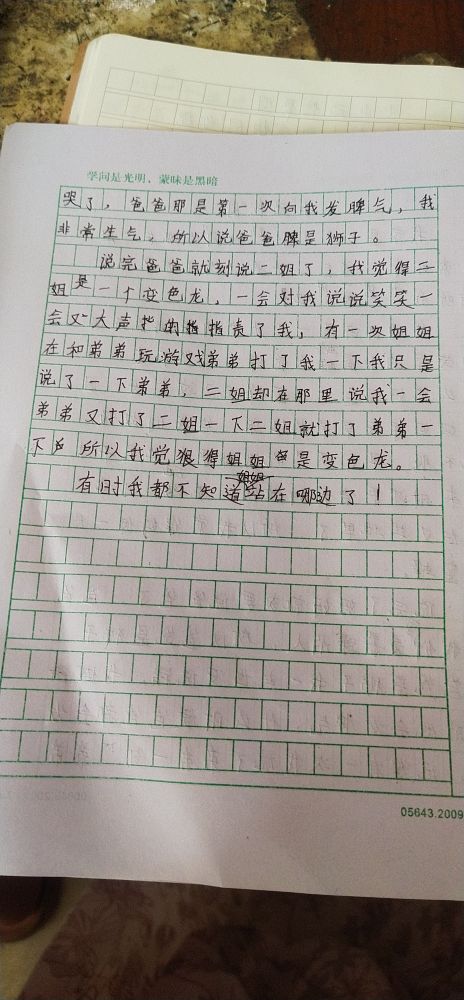 学问是光明、蒙昧是黑暗
哭了，爸爸那是第一次向我发脾气，我
非常生气，所以说爸爸脾是狮子。
说完爸爸就刻说二姐了，我觉得二
姐是一个变色龙，一会对我说说笑笑一
会又大声的指指责了我，有一次姐姐
在和弟弟玩游戏弟弟打了我一下我只是
说了一下弟弟，二姐却在那里说我一会
弟弟又打了二姐一下二姐就打了弟弟一
下 所以我觉狠得姐姐 是变色龙。
有时我都不知道姐姐站在哪边了！
05643.2009